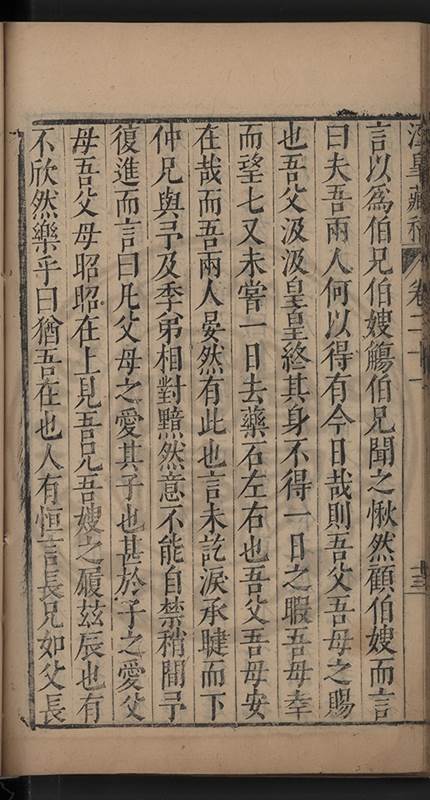 涇臯藏稿 卷二十一 十三
言以爲伯兄伯嫂觴伯兄聞之愀然顧伯嫂而言
曰夫吾兩人何以得有今日哉則吾父吾母之賜
也吾父汲汲皇皇終其身不得一日之暇吾母幸
而望七又未嘗一日去藥石左右也吾父吾母安
在哉而吾兩人晏然有此也言未訖淚承睫而下
仲兄與予及季弟相對黯然意不能自禁稍間予
復進而言曰凡父母之愛其子也甚於子之愛父
母吾父母昭昭在上見吾兄吾嫂之履茲辰也有
不欣然樂乎曰猶吾在也人有恒言長兄如父長